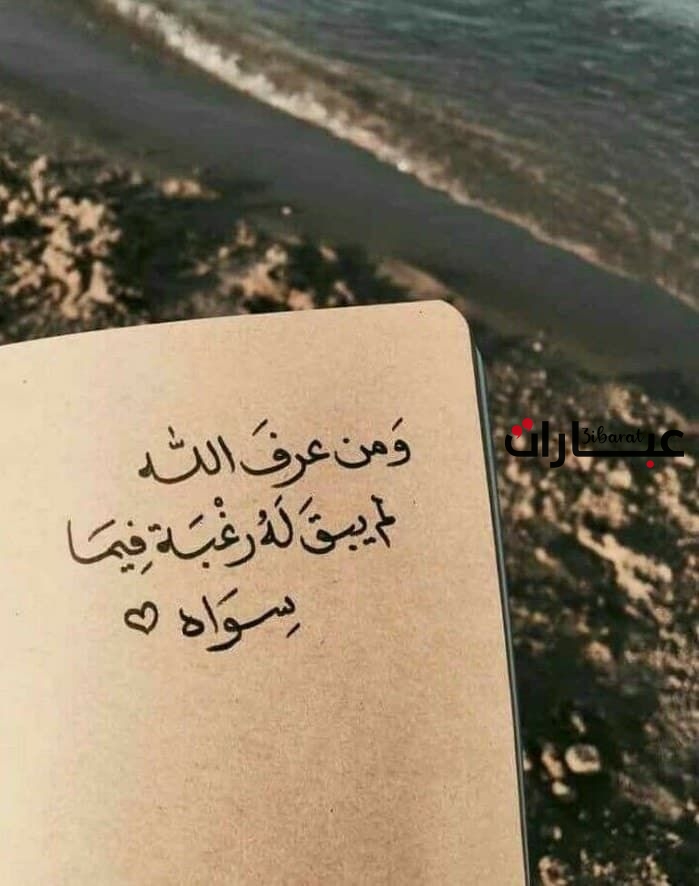 وَمن عرفَ الله
لم يبقَ لَهُ رغْبَة فِيمَا
سِوَاه ♡
عبارات
3ibarat